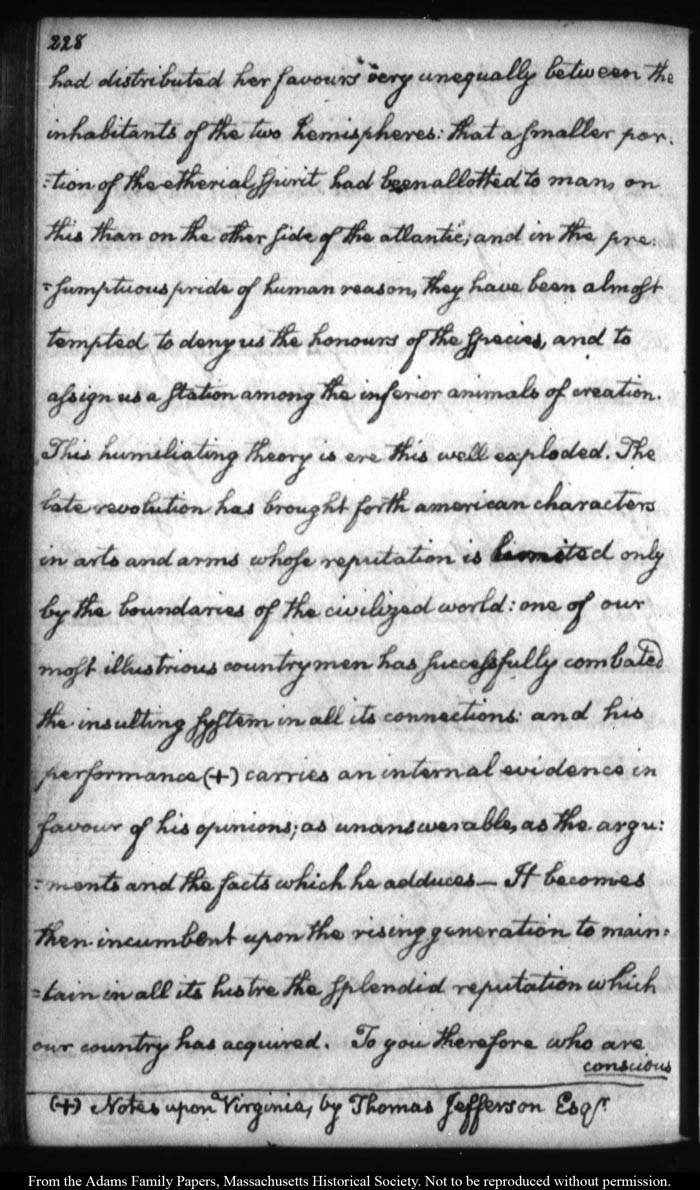 228
had distributed her favours very unequally between the
inhabitants of the two hemispheres: that a smaller por:
:tion of the etherial spirit had been allotted to man, on
this than on the other side of the atlantic; and in the pre:
:sumptuous pride of human reason, they have been almost
tempted to deny us the honours of the species, and to
assign us a station among the inferior animals of creation.
This humiliating theory is ere this well exploded. The
late revolution has brought forth american characters
in arts and arms whose reputation is limited only
by the boundaries of the civilized world: one of our
most illustrious countrymen has successfully combated
the insulting system in all its connections: and his
performance (+) carries an internal evidence in
favour of his opinions; as unanswerable, as the argu:
:ments and the facts which he adduces— It becomes
then incumbent upon the rising generation to main:
:tain in all its lustre the splendid reputation which
our country has acquired. To you therefore who are
conscious
(+) Notes upon Virginia, by Thomas Jefferson Esqr.
From the Adams Family Papers, Massachusetts Historical Society. Not to be reproduced without permission.